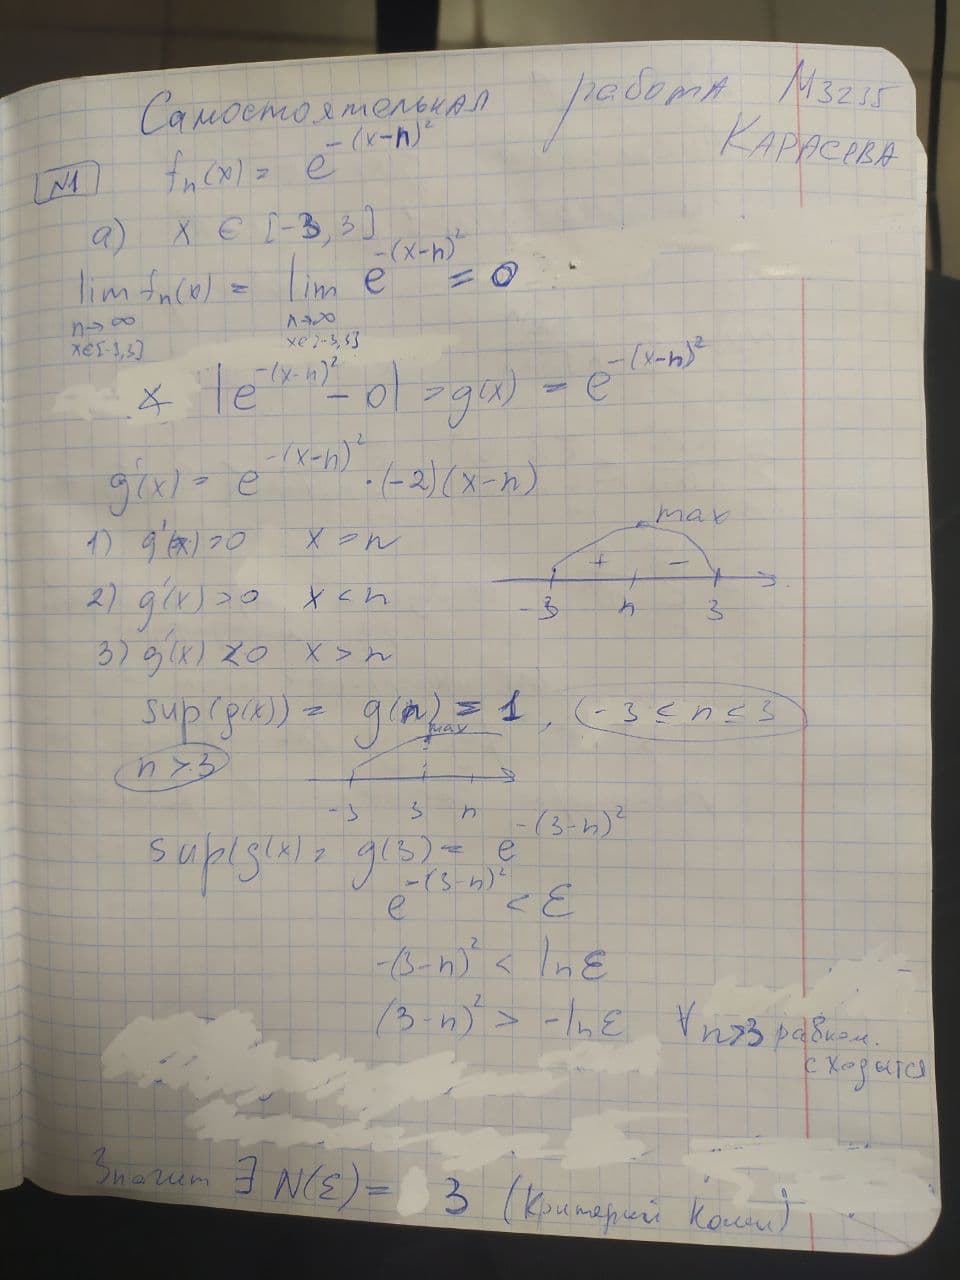 Самостоятельная работа M3235
КАРАСЕВА
N1 fₙ(x) = e^{-(x-n)²}
a) x ∈ [-3, 3]
lim fₙ(x) = lim e^{-(x-n)²} = 0
n→∞ n→∞
x∈[-3,3] x∈[-3,3]
|e^{-(x-n)²} - 0| = g(x) = e^{-(x-n)²}
g'(x) = e^{-(x-n)²} · (-2)(x-n)
max
1) g'(x) = 0 x = n
+ −
2) g'(x) > 0 x < n
-3 n 3
3) g'(x) < 0 x > n
sup(g(x)) = g(n) = 1, (-3 ≤ n ≤ 3
max
n > 3
-3 3 n
sup(g(x) = g(3) = e^{-(3-n)²}
e^{-(3-n)²} < ε
-(3-n)² < ln ε
(3-n)² > -ln ε ∀n>3 равном.
сходится
Значит ∃ N(ε) = 3 (Критерий Коши)